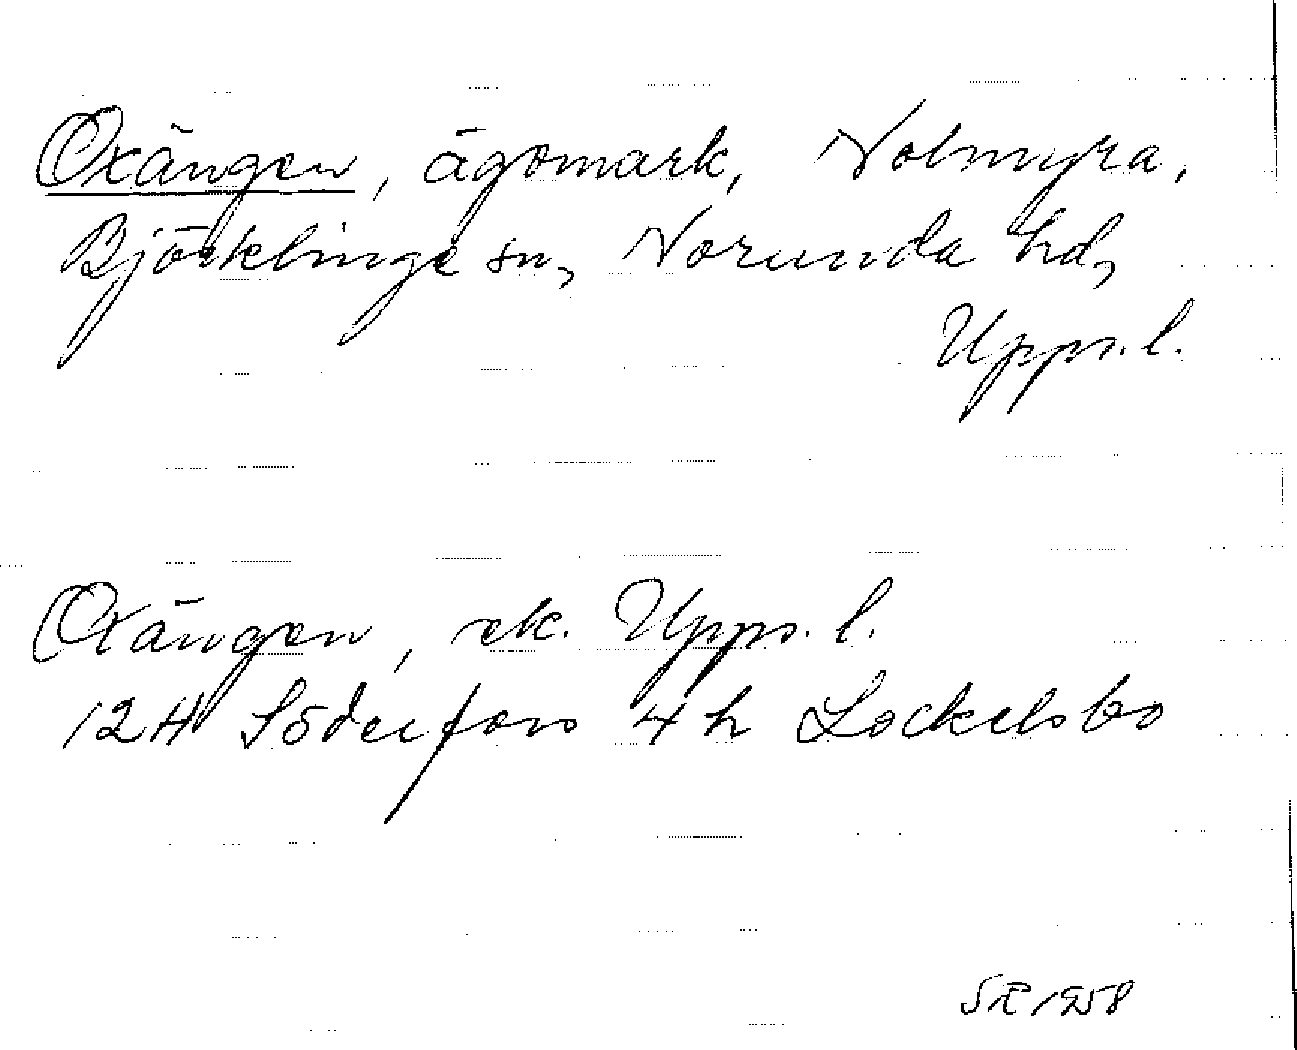 Oxängen, ägomark, Nolmyra,
Björklinge sn, Norunda hd,
Upps.l.
Oxängen, ek. Upps.l.
12H Söderfors 4h Lockelsbo
SR 1958